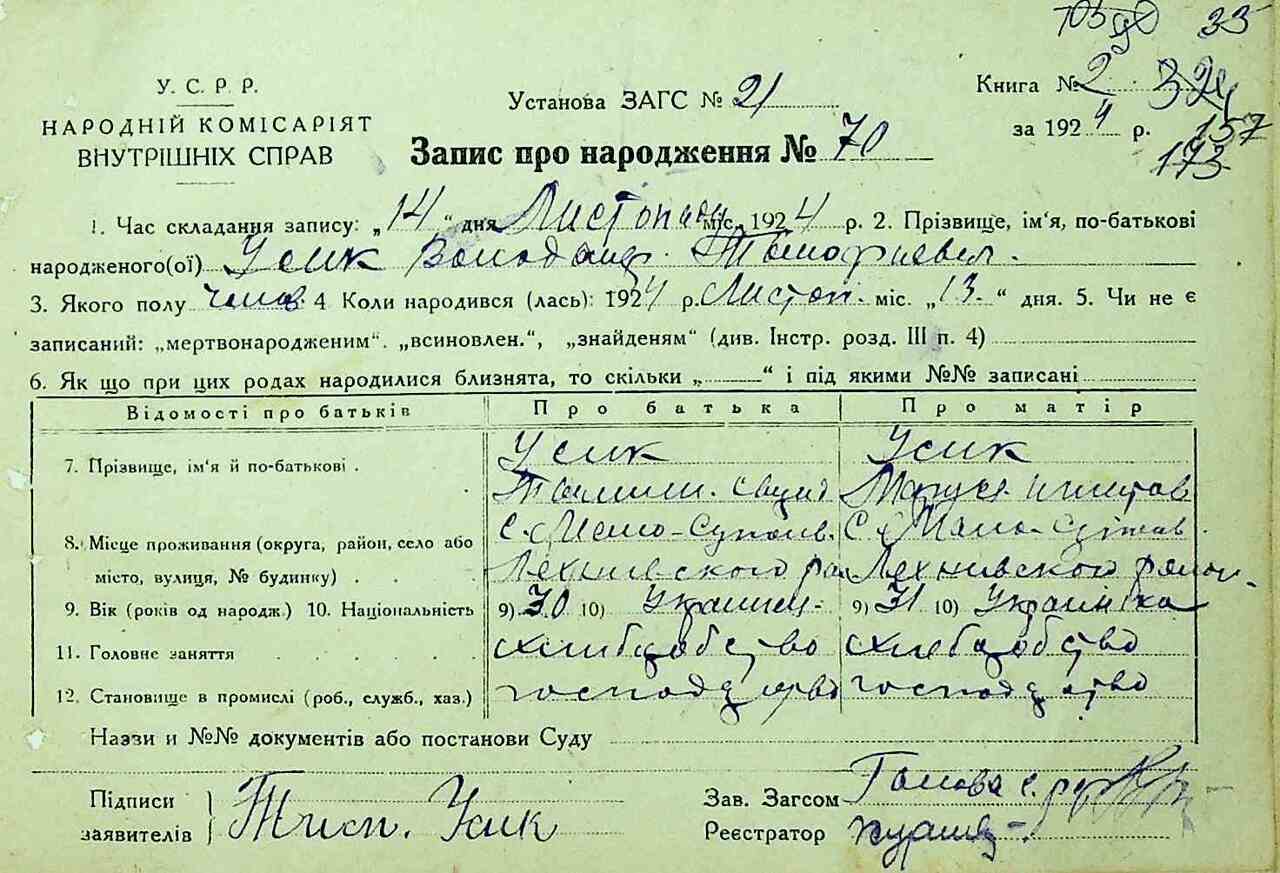 33
У. С. Р. Р.
НАРОДНІЙ КОМІСАРІЯТ
ВНУТРІШНІХ СПРАВ
Установа ЗАГС № 21
Запис про народження № 70
Книга № 2
за 1924 р.
157
173
1. Час складання запису: „14“ дня Листопада міс. 1924 р. 2. Прізвище, ім‘я, по-батькові
народженого(ої) Усик Володимир.
3. Якого полу чолов. 4 Коли народився (лась): 1924 р. Листоп. міс. „13.“ дня. 5. Чи не є
записаний: „мертвонародженим“. „всиновлен.“, „знайденям“ (див. Інстр. розд. III п. 4)
6. Як що при цих родах народилися близнята, то скільки „ “ і під якими №№ записані
Відомості про батьків Про батька Про матір
7. Прізвище, ім‘я й по-батькові . Усик Усик
8. Місце проживання (округа, район, село або С. С.
місто, вулиця, № будинку) . . Лехнивского Лехнивского район.
9. Вік (років од народж.) 10. Національність 9) 30 10) 9) 31 10) Українка
11. Головне заняття . . . . . хлибодобство хлебодобство
12. Становище в промислі (роб., служб., хаз.) господарство
Назви и №№ документів або постанови Суду
Підписи
заявителів Усик
Зав. Загсом Голова с.
Реєстратор